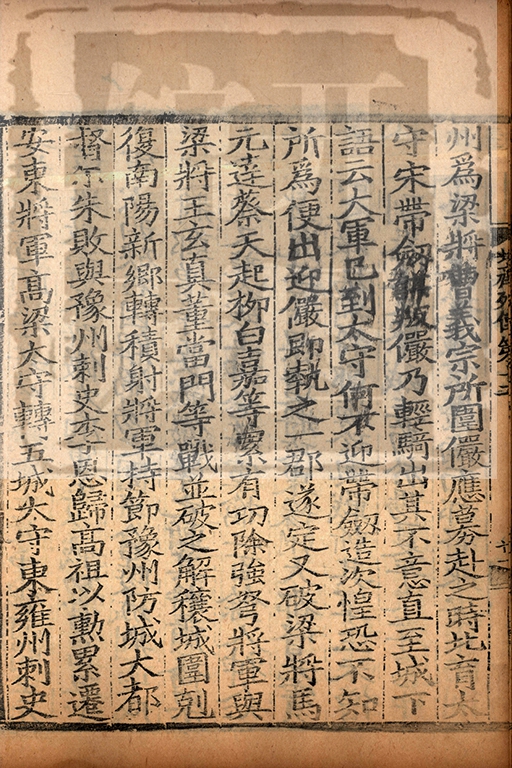 州爲梁將曹義宗所圍儼應募赴之時北育太
守宋帶劔謀叛儼乃輕騎出其不意直至城下
語云大軍已到太守何不迎帶劔造次惶恐不知
所爲便出迎儼即執之一郡遂定又破梁將馬
元逹蔡天起柳白嘉等累有功除強弩將軍與
梁將王玄真董當門等戰並破之解穰城圍剋
復南陽新鄉轉積射將軍持節豫州防城大都
督尔朱敗與豫州刺史李恩歸髙祖以勲累遷
安東將軍髙梁太守轉五城太守東雍州刺史